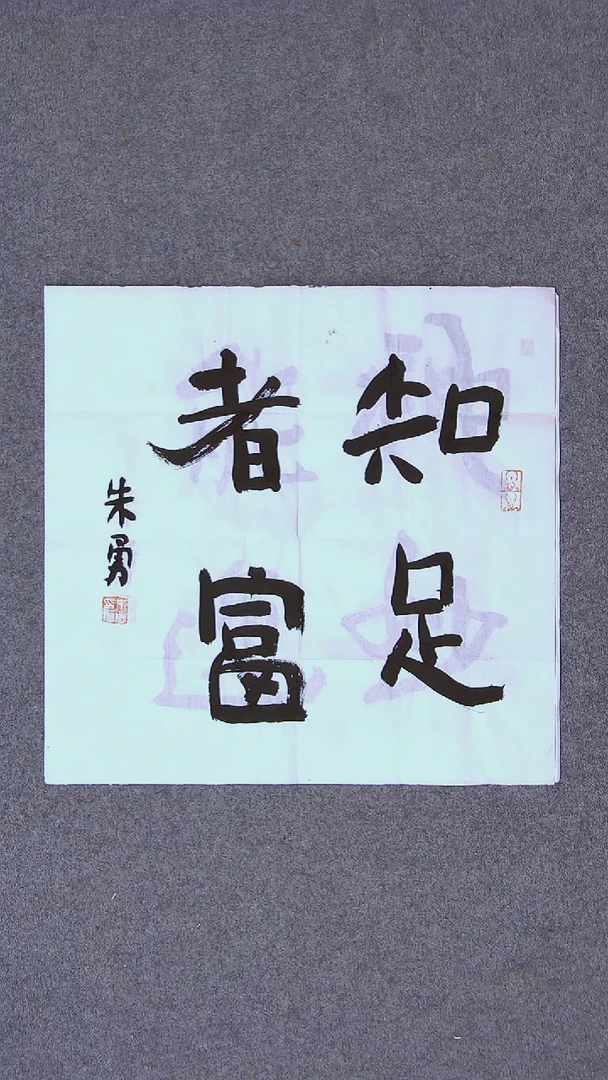 知足
者富
朱勇